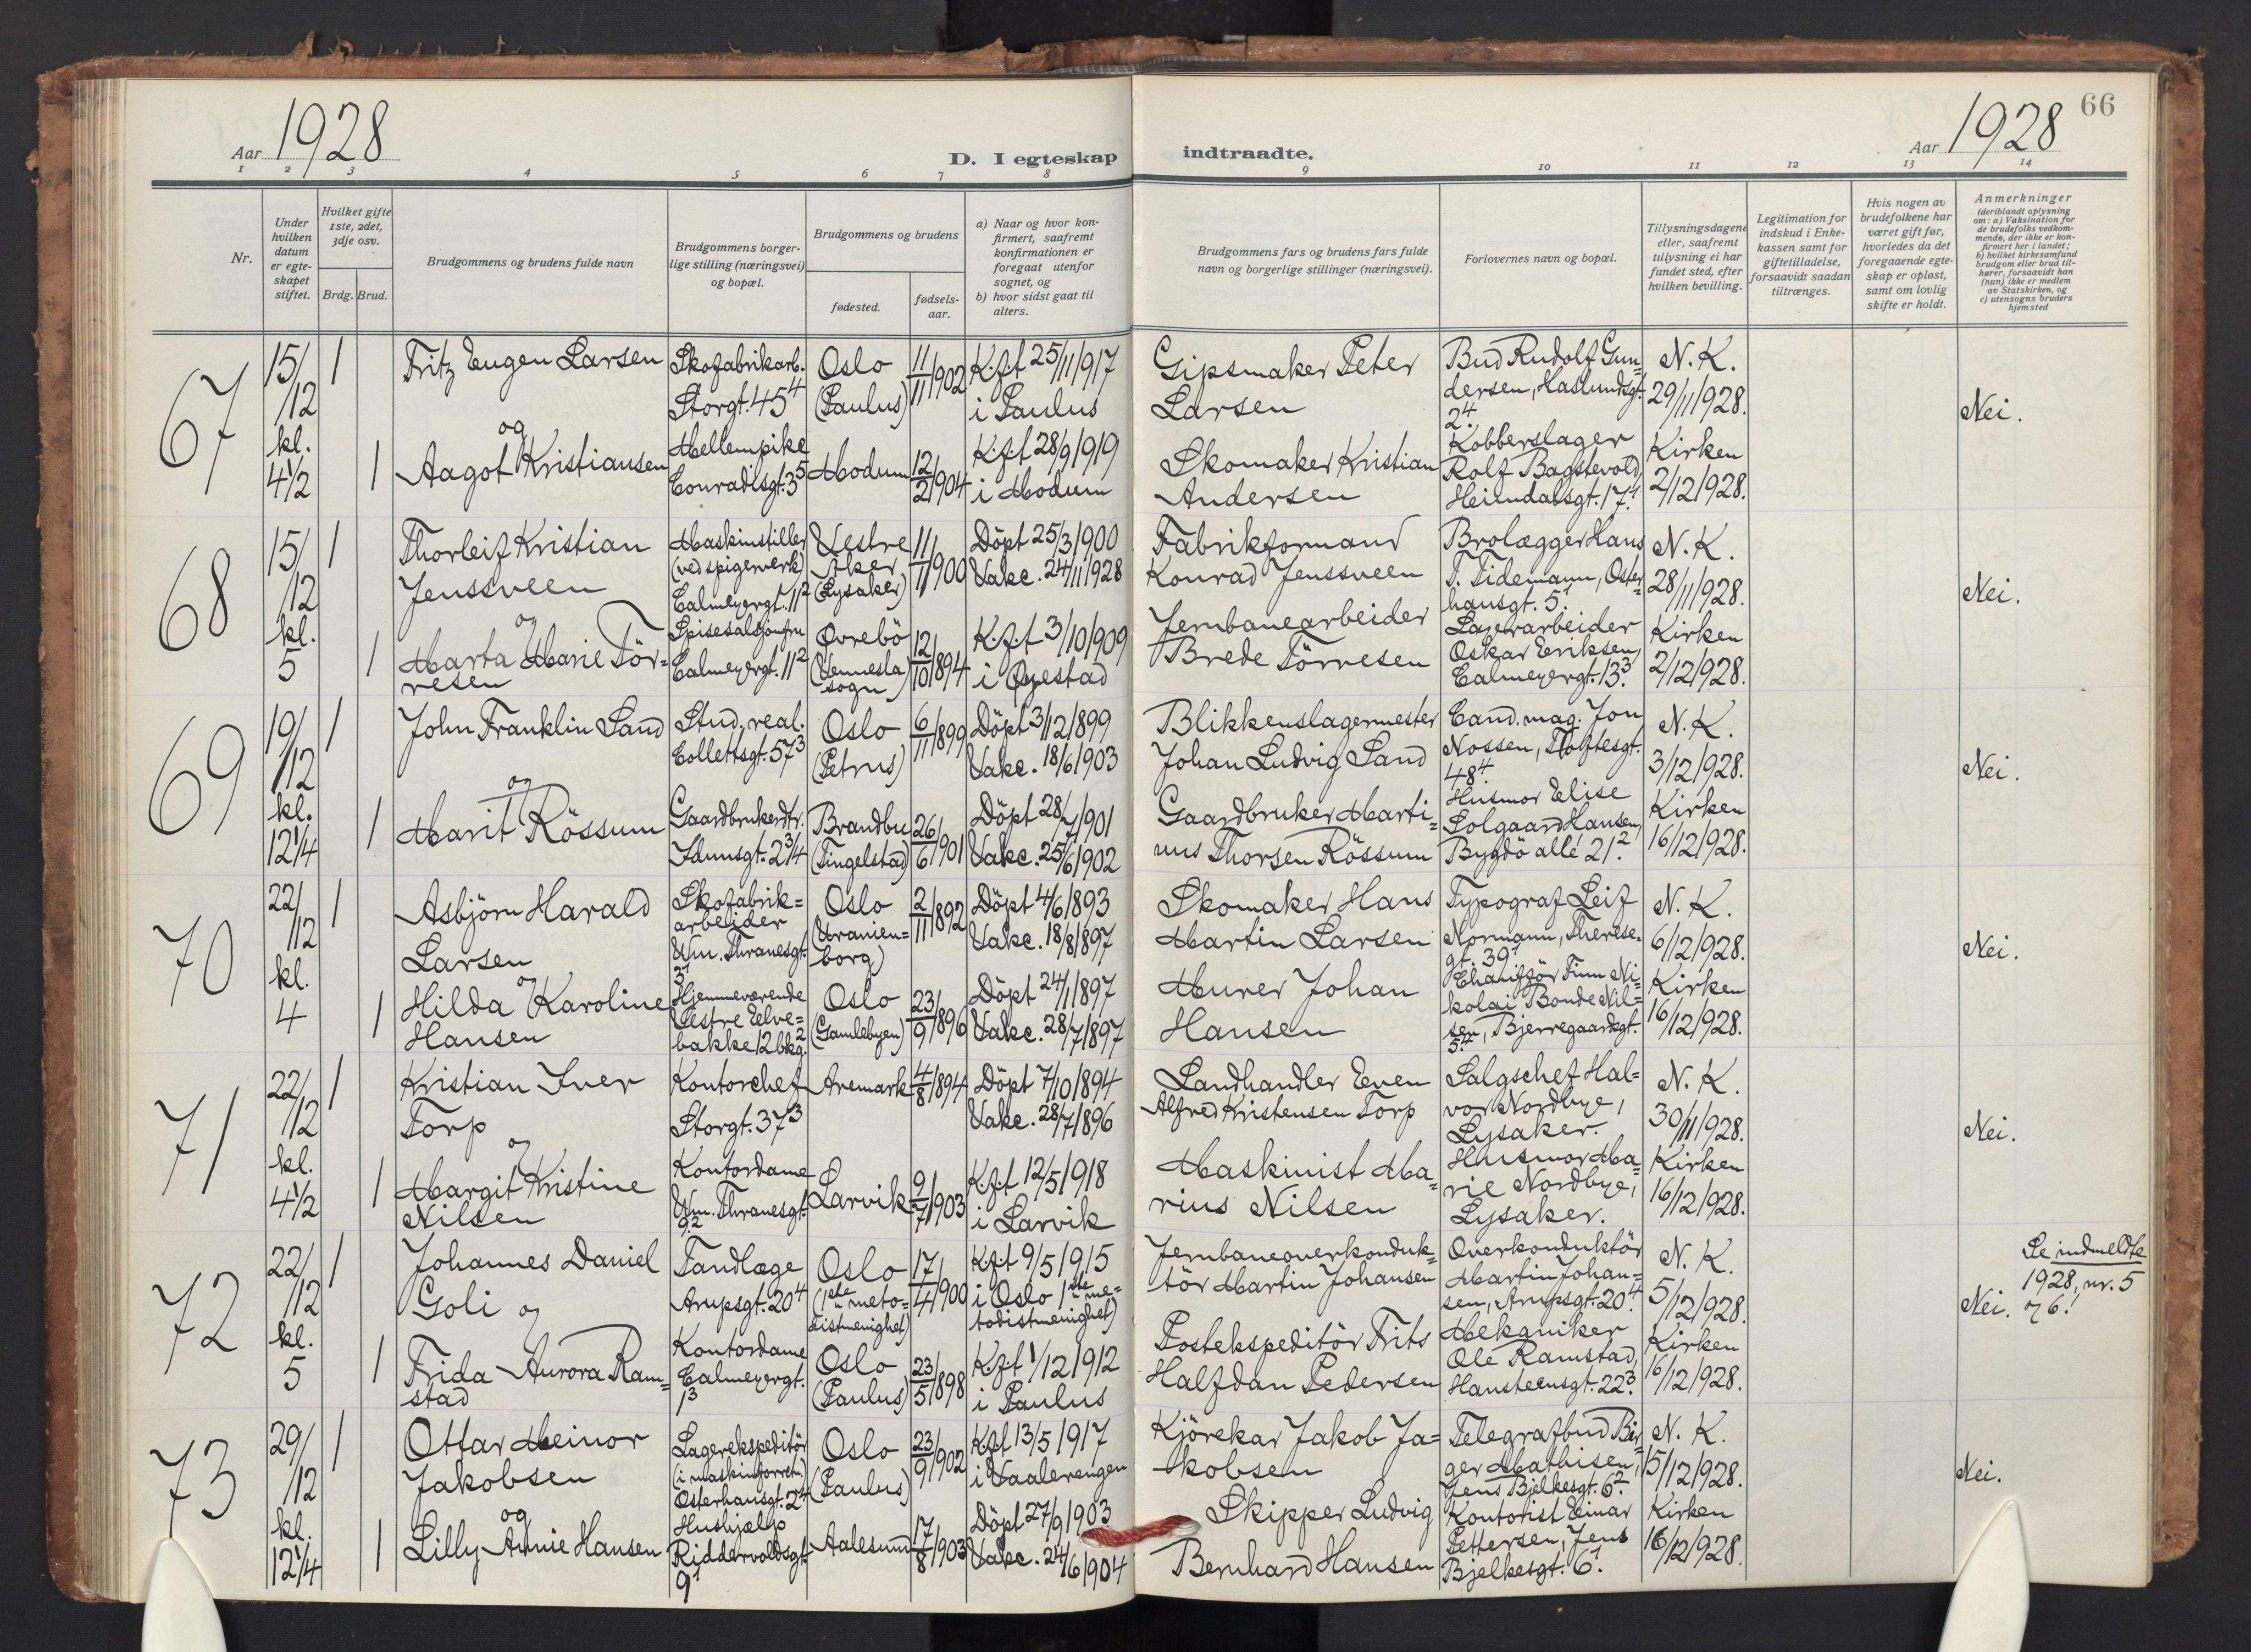 Aar 1928
D. I egteskap
indtraadte.
Aar 1928
66
1 2 3 4 5 6 7 8 9 10 11 12 13 14
Nr.
Under hvilken datum er egte-skapet stiftet.
Hvilket gifte 1ste, 2det, 3dje osv.
Brdg. Brud.
Brudgommens og brudens fulde navn
Brudgommens borger-lige stilling (næringsvei) og bopæl.
Brudgommens og brudens
fødested.
fødsels-aar.
a) Naar og hvor kon-firmert, saafremt konfirmationen er foregaat utenfor sognet, og
b) hvor sidst gaat til alters.
Brudgommens fars og brudens fars fulde navn og borgerlige stillinger (næringsvei).
Forlovernes navn og bopæl.
Tillysningsdagene eller, saafremt tillysning ei har fundet sted, efter hvilken bevilling.
Legitimation for indskud i Enke-kassen samt for giftetilladelse, forsaavidt saadan tiltrænges.
Hvis nogen av brudefolkene har været gift før, hvorledes da det foregaaende egte-skap er opløst, samt om lovlig skifte er holdt.
Anmerkninger (deriblandt oplysning om: a) Vaksination for de brudefolks vedkom-mende, der ikke er kon-firmert her i landet; b) hvilket kirkesamfund brudgom eller brud til-hører, forsaavidt han (hun) ikke er medlem av Statskirken, og c) utensogns bruders hjemsted
67
15/12 kl. 4 1/2
1
Fritz Eugen Larsen
og
Skofabrikarb. Storgt. 45 4
Oslo (Paulus)
11/11 1902
Kft 25/11 1917 i Paulus
Gipsmaker Peter Larsen
Bud Rudolf Gun=dersen, Haslundsgt. 2 4.
N. K. 29/11 1928.
Nei.
1
Aagot Kristiansen
Mellempike Conradisgt. 3 5
Modum
12/2 1904
Kft 28/9 1919 i Modum
Skomaker Kristian Andersen
Kobberslager Rolf Bagstevold, Heimdalsgt. 17 1
Kirken 2/12 1928.
68
15/12 kl. 5
1
Thorleif Kristian Jenssveen
og
Maskinstiller (ved spigerverk) Calmeyergt. 11 2
Vestre Aker (Lysaker)
11/11 1900
Döpt 25/3 1900 Vakc. 24/11 1928
Fabrikformand Konrad Jenssveen
Brolægger Hans T. Tidemann, Oster=hausgt. 5 1
N. K. 28/11 1928.
Nei.
1
Marta Marie Tör=resen
Spisesalsjomfru Calmeyergt. 11 2
Övrebö (Vennesla sogn)
12/10 1894
Kft 3/10 1909 i Öyestad
Jernbanearbeider Brede Törresen
Lagerarbeider Oskar Eriksen, Calmeyergt. 13 3.
Kirken 2/12 1928.
69
19/12 kl. 12 1/4
1
John Franklin Sand
og
Stud. real. Collettsgt. 57 3
Oslo (Petrus)
6/11 1899
Döpt 3/12 1899 Vakc. 18/6 1903
Blikkenslagermester Johan Ludvig Sand
Cand. mag. Jon Nossen, Toftesgt. 48 4.
N. K. 3/12 1928.
Nei.
1
Marit Rössum
Gaardbrukerdtr. Idunsgt. 2 3/4
Brandbu (Tingelstad)
26/6 1901
Döpt 28/7 1901 Vakc. 25/6 1902
Gaardbruker Marti=nus Thorsen Rössum
Husmor Elise Solgaard Hansen, Bygdö allé 21 2.
Kirken 16/12 1928.
70
22/12 kl. 4
1
Asbjörn Harald Larsen
og
Skofabrik=arbeider Wm. Thranesgt. 3 1
Oslo (Uranien=borg)
2/11 1892
Döpt 4/6 1893 Vakc. 18/8 1897
Skomaker Hans Martin Larsen
Typograf Leif Normann, Therese-gt. 39 1
N. K. 6/12 1928.
Nei.
1
Hilda Karoline Hansen
Hjemmeværende Vestre Elve=bakke 12 bkg. 2
Oslo (Gamlebyen)
23/9 1896
Döpt 24/1 1897 Vakc. 28/7 1897
Murer Johan Hansen
Chaufför Finn Ni=kolai Bonde Nil=sen, Bjerregaardsgt. 5 4.
Kirken 16/12 1928.
71
22/12 kl. 4 1/2
1
Kristian Iver Torp
og
Kontorchef Storgt. 37 3
Aremark
4/8 1894
Döpt 7/10 1894 Vakc. 28/7 1896
Landhandler Even Alfred Kristensen Torp
Salgschef Hal=vor Nordbye, Lysaker.
N. K. 30/11 1928.
Nei.
1
Margit Kristine Nilsen
Kontordame Wm. Thranesgt. 9 2
Larvik
9/7 1903
Kft 12/5 1918 i Larvik
Maskinist Ma=rius Nilsen
Husmor Ma=rie Nordbye, Lysaker.
Kirken 16/12 1928.
72
22/12 kl. 5
1
Johannes Daniel Goli og
Tandlæge Arupsgt. 20 4
Oslo (1ste meto=distmenighet)
17/4 1900
Kft 9/5 1915 i Oslo 1ste me=todistmenighet)
Jernbaneoverkonduk=tör Martin Johansen
Overkonduktör Martin Johan=sen, Arupsgt. 20 4.
N. K. 5/12 1928.
Nei.
Se indmeldte 1928, nr. 5 og 6!
1
Frida Aurora Ram=stad
Kontordame Calmeyergt. 1 3
Oslo (Paulus)
23/5 1898
Kft 1/12 1912 i Paulus
Postekspeditör Frits Halfdan Pedersen
Mekaniker Ole Ramstad, Hansteensgt. 22 3.
Kirken 16/12 1928.
73
29/12 kl. 12 1/4
1
Ottar Meinor Jakobsen
og
Lagerekspeditör (i maskinforretn.) Osterhausgt. 2 4
Oslo (Paulus)
23/9 1902
Kft 13/5 1917 i Vaalerengen
Kjörekar Jakob Ja=kobsen
Telegrafbud Bir=ger Mathisen, Jens Bjelkesgt. 6 2.
N. K. 15/12 1928.
Nei.
1
Lilly Annie Hansen
Hushjælp Riddervoldsgt. 9 1
Aalesund
17/8 1903
Döpt 27/9 1903 Vakc. 24/6 1904
Skipper Ludvig Bernhard Hansen
Kontorist Einar Pettersen, Jens Bjelkesgt. 6 1.
Kirken 16/12 1928.